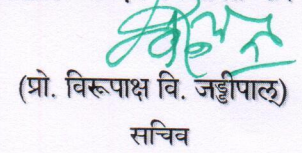 (प्रो. विरूपाक्ष वि. जड्डीपाल)
सचिव